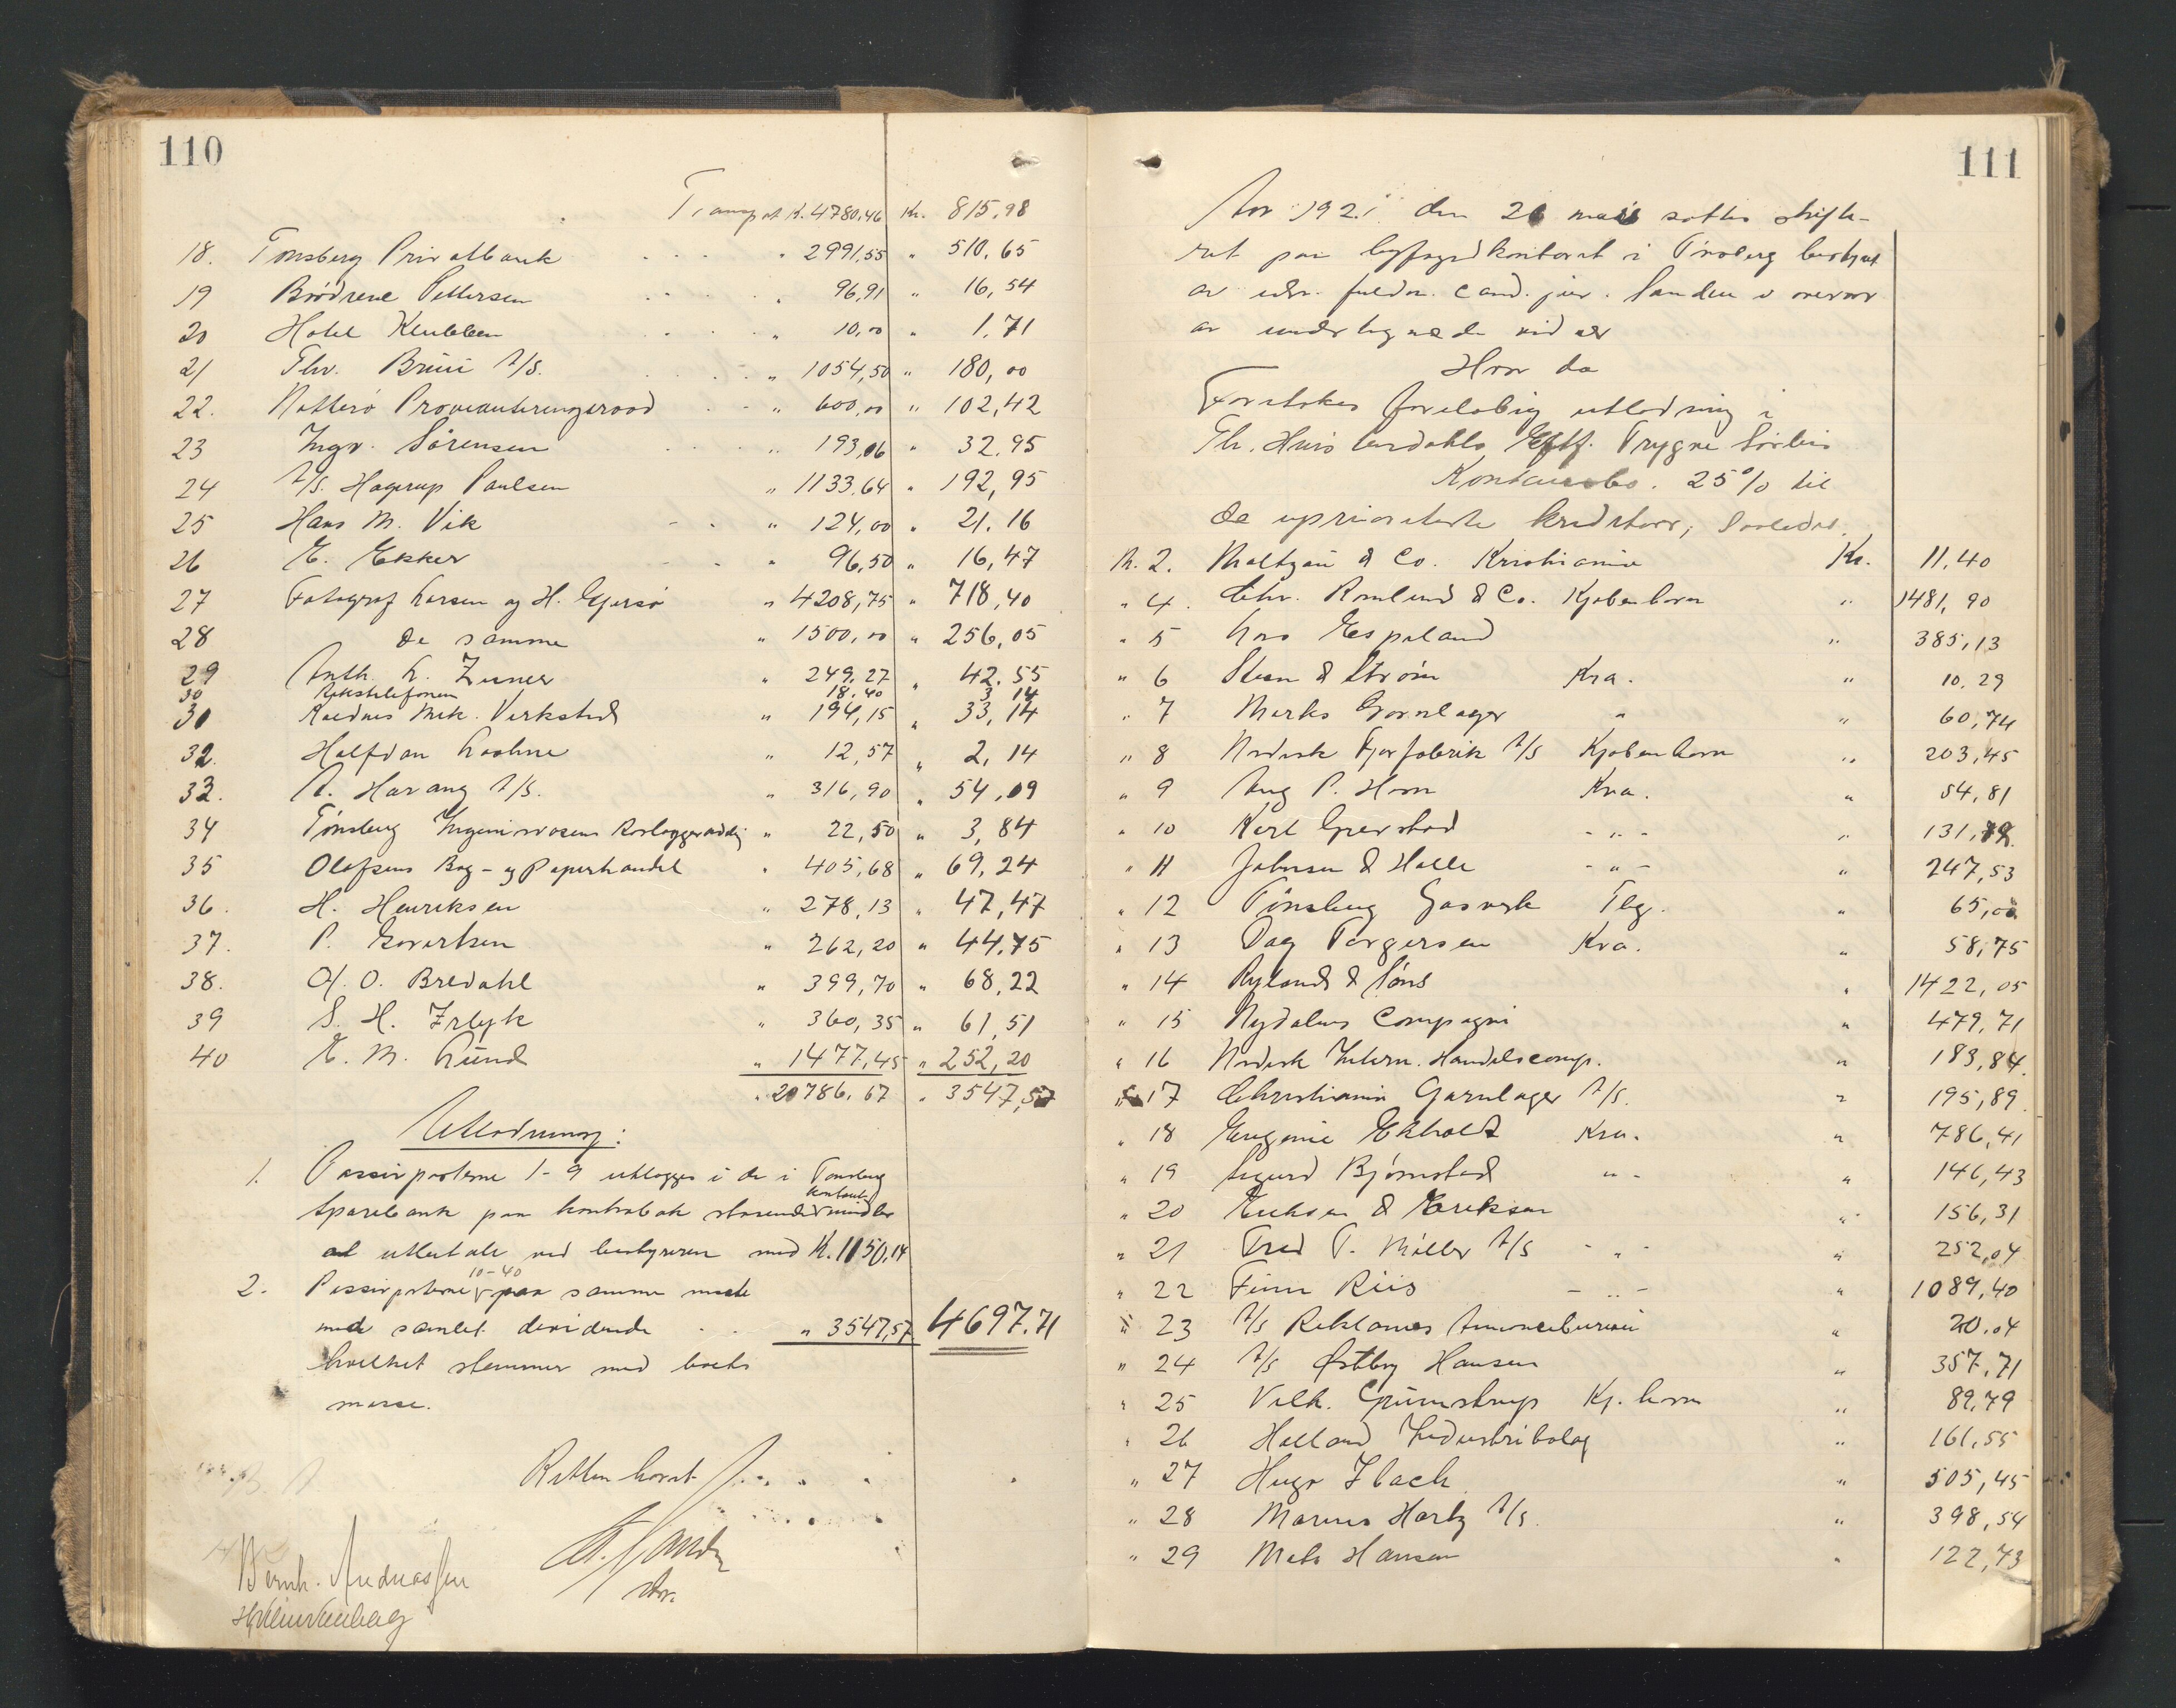 110
Transport K. 4780,46 Kr. 815,98
18. Tønsberg Privatbank " 2991,55 " 510,65
19 Brødrene Pettersen " 96,91 " 16,54
20 Hotel Klubben " 10,00 " 1,71
21 Thv. Bruu A/S. " 1054,50 " 180,00
22. Nøtterø Provianteringsraad " 600,00 " 102,42
23 Ingv. Sørensen " 193,06 " 32,95
24 A/S. Hagerup Paulsen " 1133,64 " 192,95
25 Hans M. Vik " 124,00 " 21,16
26 E. Ekker " 96,50 " 16,47
27 Fotograf Larsen og H. Gjersø " 4208,75 " 718,40
28 De samme " 1500,00 " 256,05
29 Anth. L. " 249,27 " 42,55
30 Rikstelefonen 18,40 3 14
31 Kaldnes Mek. Verksted " 194,15 " 33,14
32. Halfdan " 12,57 " 2,14
33. A. Harang A/S. " 316,90 " 54,09
34 Tønsberg " 22,50 " 3,84
35 Olafsens Bog- og Papirhandel " 405,68 " 69,24
36. H. Henriksen " 278,13 " 47,47
37. P. " 262,20 " 44,75
38. O. Bredahl " 399,70 " 68,22
39 S. H. " 360,35 " 61,51
40 E. M. Lund " 1477,45 " 252,20
" 20786,67 " 3547,57
Utlodning:
1. Passivposterne 1-9 utlægges i de i Tønsberg
Sparebank paa kontrabok staaende kontante midler
at utbetale ved bestyreren med K. 1150,14
2. Passivposterne 10-40 paa samme maate
med samlet dividende " 3547,57 4697.71
hvilket stemmer med boets
masse.
Retten hævet
Bernh. Andreassen
111
Aar 1921 den 26 mai sattes skifte-
ret paa byfogdkontoret i Tønsberg bestyret
av edsv. fuldm. cand. jur. Sanden i overvær
av undertegnede vidner
Hvor da
Foretokes foreløbig utlodning i
Th. Eftf. Trygve Sørlies
Konkursbo. 25 % til
de uprioriterte kreditorer, saaledes
Nr. 2. Maltzau & Co. Kristiania Kr. 11,40
" 4. Chr. & Co. Kjøbenhavn " 1481,90
" 5 Lars Espeland " 385,13
" 6 Steen & Strøm Kra. " 10,29
" 7 Marks Garnlager " " 60,74
" 8 Nordisk Fjerfabrik A/S Kjøbenhavn " 203,45
" 9 Aug P. Horn Kra. " 54,81
" 10 Karl -"- " 131,
" 11 Johnsen & Halle -"- " 247,53
" 12 Tønsberg Gasverk Tbg. " 65,00
" 13 Dag Torgersen Kra. " 58,75
" 14 Rylands & Søns " 1422,05
" 15 Nydalens Compagni " 479,71
" 16 Nordisk Intern. Handelscomp. " 183,84
" 17 Christiania Garnlager A/S. " 195,89
" 18 Eugenie Ekholdt Kra. " 786,41
" 19 Sigurd Bjørnstad " - " 146,43
" 20 Eriksen & Eriksen " 156,31
" 21 Fred T. Møller A/S - " - " 252,04
" 22 Finn Riis - " - " 1089,40
" 23 A/S Reklames Annoncebureau " 20,04
" 24 A/S Østby Hansen " 357,71
" 25 Vilh. Kj.havn " 89,79
" 26 Halland Industribolag " 161,55
" 27 Hugo " 505,45
" 28 Marius A/S. " 398,54
" 29 Mats Hansen " 122,73